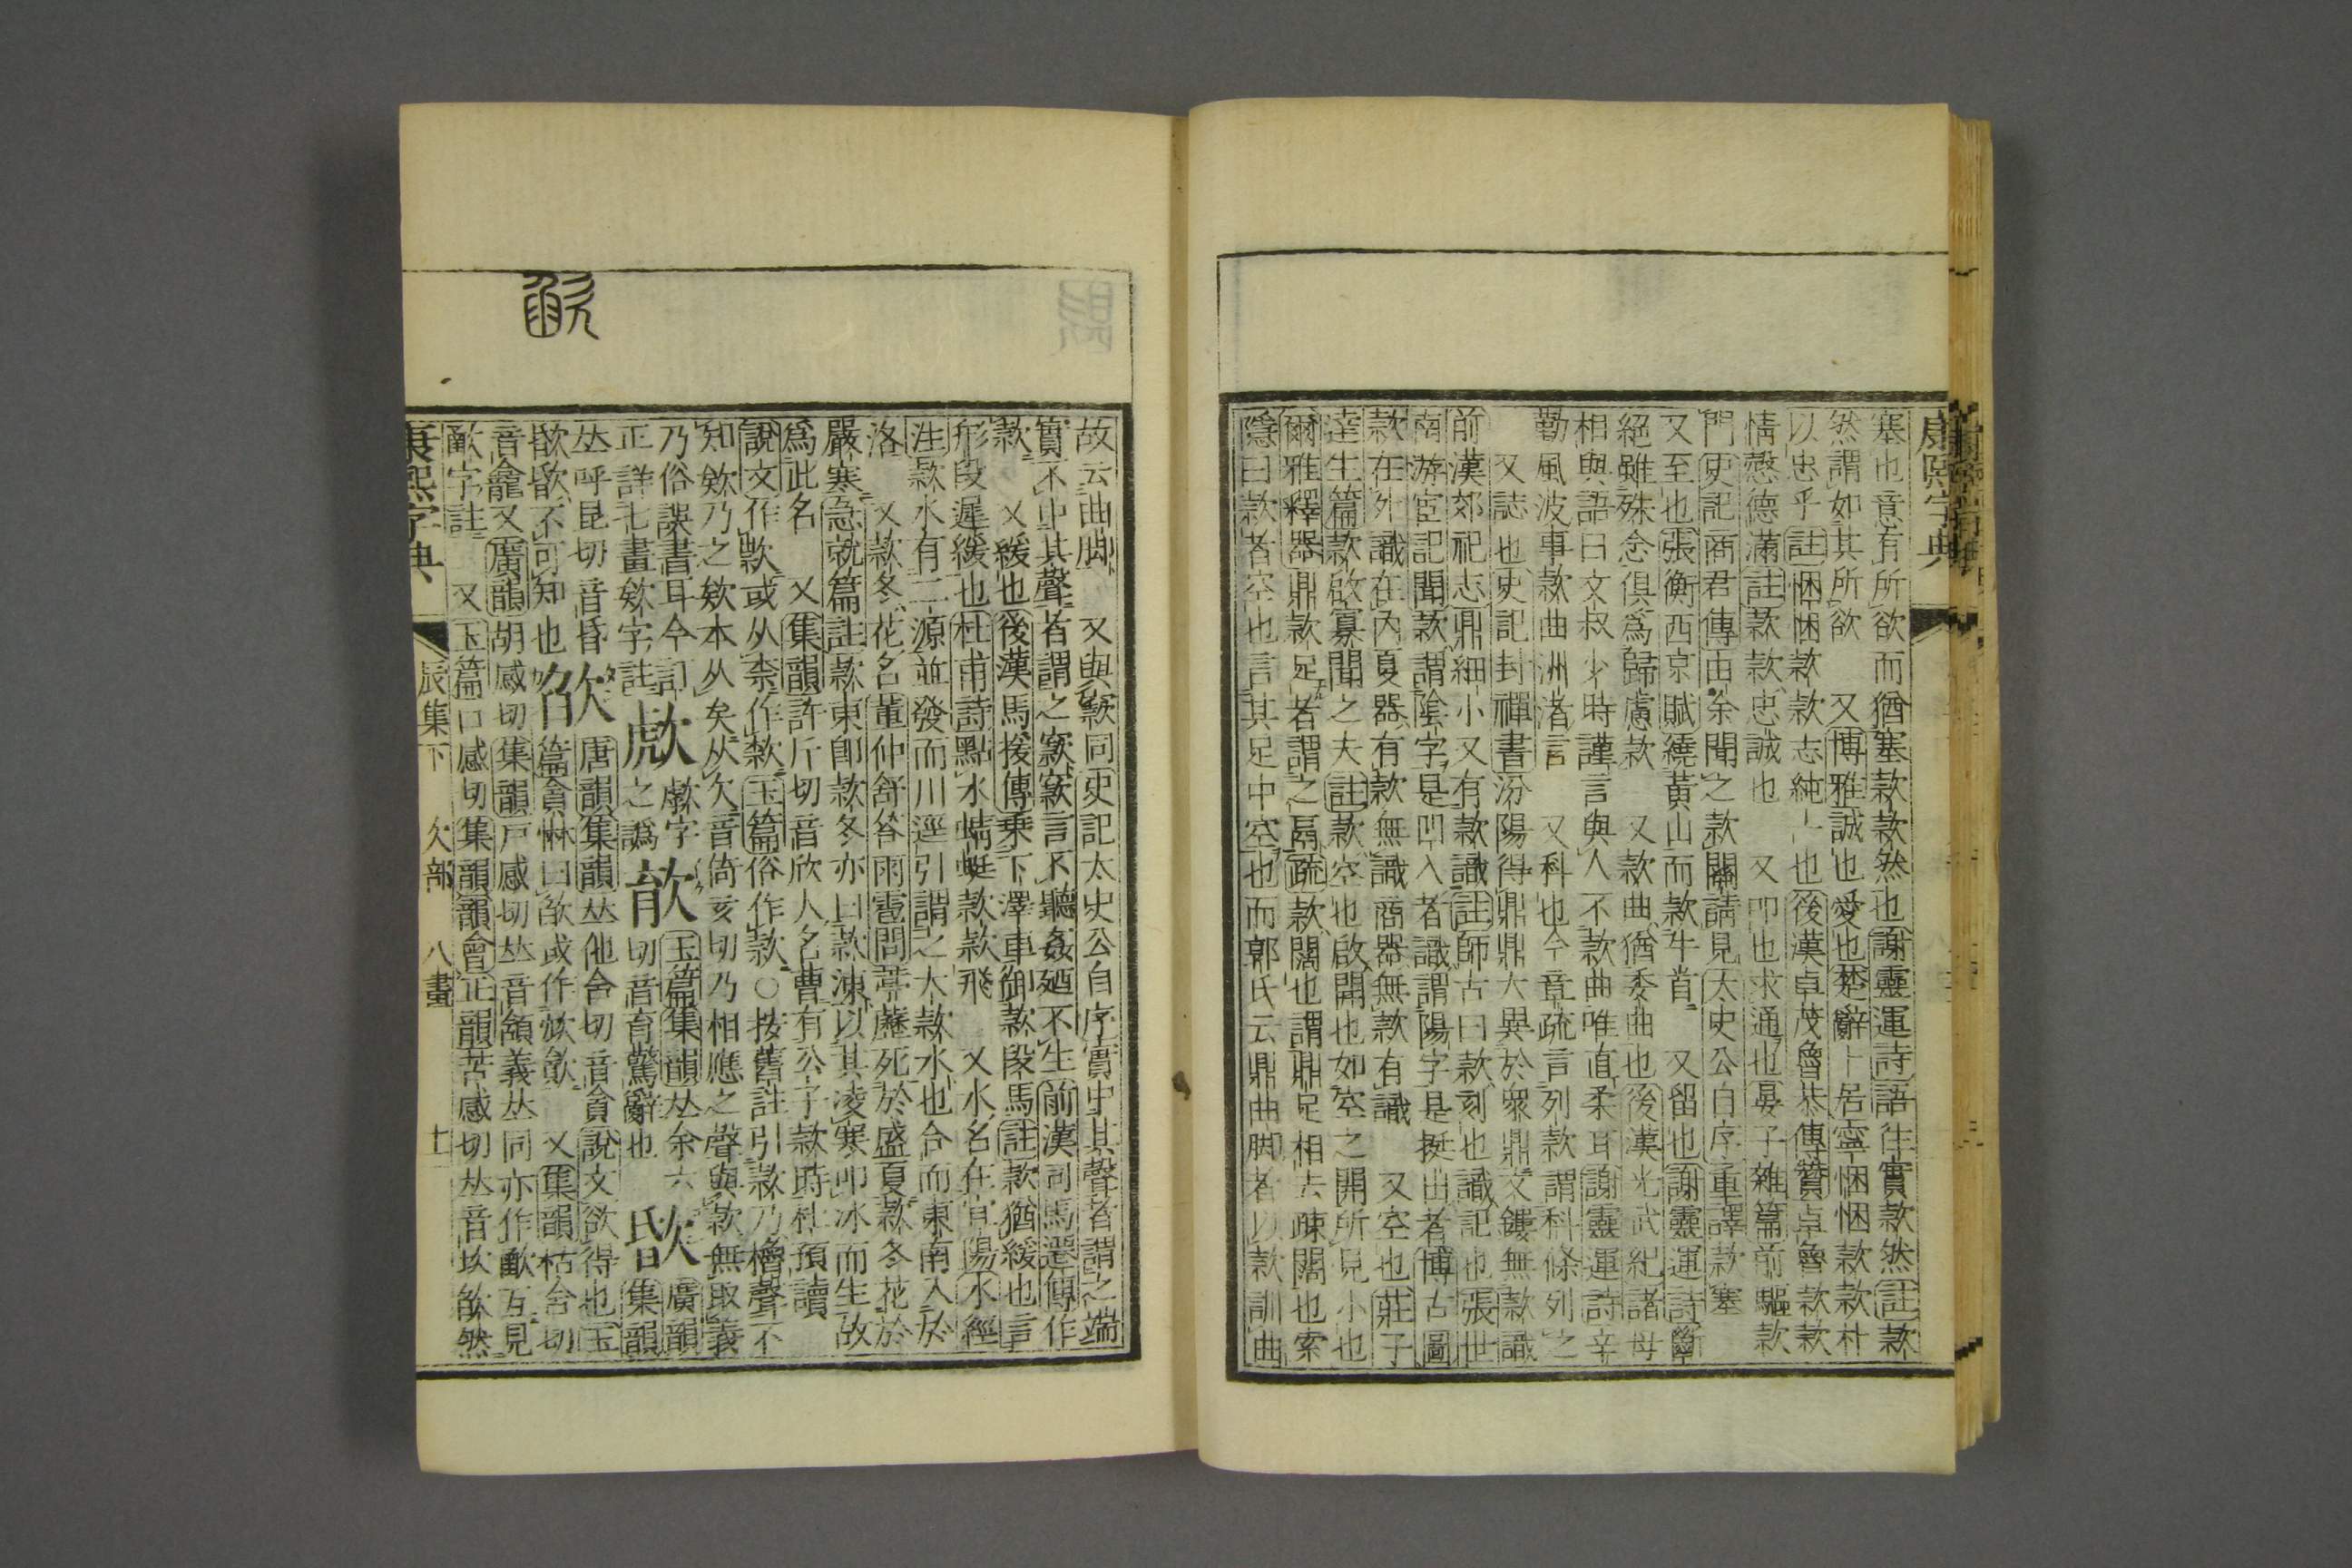 康熙字典
塞也意有所欲而猶塞款款然也謝靈運詩語往實款然註款
然謂如其所欲　又博雅誠也愛也楚辭卜居寧悃悃款款朴
以忠乎註悃悃款款志純一也後漢卓茂魯恭傳贊卓魯款款
情愨德滿註款款忠誠也　又叩也求通也晏子雜篇前驅款
門史記商君傳由余聞之款關請見太史公自序重譯款塞
又至也張衡西京賦繞黃山而款牛首　又留也謝靈運詩斷
絕雖殊念俱爲歸慮款　又款曲猶委曲也後漢光武紀諸母
相與語曰文叔少時謹言與人不款曲唯直柔耳謝靈運詩辛
勤風波事款曲洲渚言　又科也今章疏言列款謂科條列之
又誌也史記封禪書汾陽得鼎鼎大異於衆鼎文鏤無款識
前漢郊祀志鼎細小又有款識註師古曰款刻也識記也張世
南游宦記聞款謂陰字是凹入者識謂陽字是挺出者博古圖
款在外識在內夏器有款無識商器無款有識　又空也莊子
達生篇款啟寡聞之夫註款空也啟開也如空之開所見小也
爾雅釋器鼎款足者謂之鬲疏款闊也謂鼎足相去疎闊也索
隱曰款者空也言其足中空也而郭氏云鼎曲脚者以款訓曲
故云曲脚　又與窾同史記太史公自序實中其聲者謂之端
實不中其聲者謂之窾窾言不聽姦廼不生前漢司馬遷傳作
款　又緩也後漢馬援傳乗下澤車御款段馬註款猶緩也言
形段遲緩也杜甫詩點水蜻蜓款款飛　又水名在宜陽水經
注款水有二源並發而川逕引謂之大款水也合而東南入於
洛　又款冬花名董仲舒荅雨雹問葶藶死於盛夏款冬花於
嚴寒急就篇註款東卽款冬亦曰款凍以其凌寒叩冰而生故
爲此名　又集韻許斤切音欣人名曹有公子款時杜預讀
說文作款或从柰作㰲玉篇俗作欵○按舊註引欸乃櫓聲不
知欸乃之欸本从矣从欠音倚亥切乃相應之聲與款無取義
乃俗誤書耳今訂正詳七畫欸字註
㱆　歔字之譌
㰲　玉篇集韻丛余六切音育驚辭也
㱪　廣韻集韻丛呼昆切音昏㱪㱪不可知也
欿　唐韻集韻丛他含切音貪說文欲得也玉篇貪惏曰欿或作㰹㰸　又集韻枯含切
音龕又廣韻胡感切集韻戸感切丛音頷義丛同亦作㰹互見
㰹字註　又玉篇口感切集韻韻會正韻苦感切丛音坎欿然
康熙字典　辰集下　欠部　八畫　十一